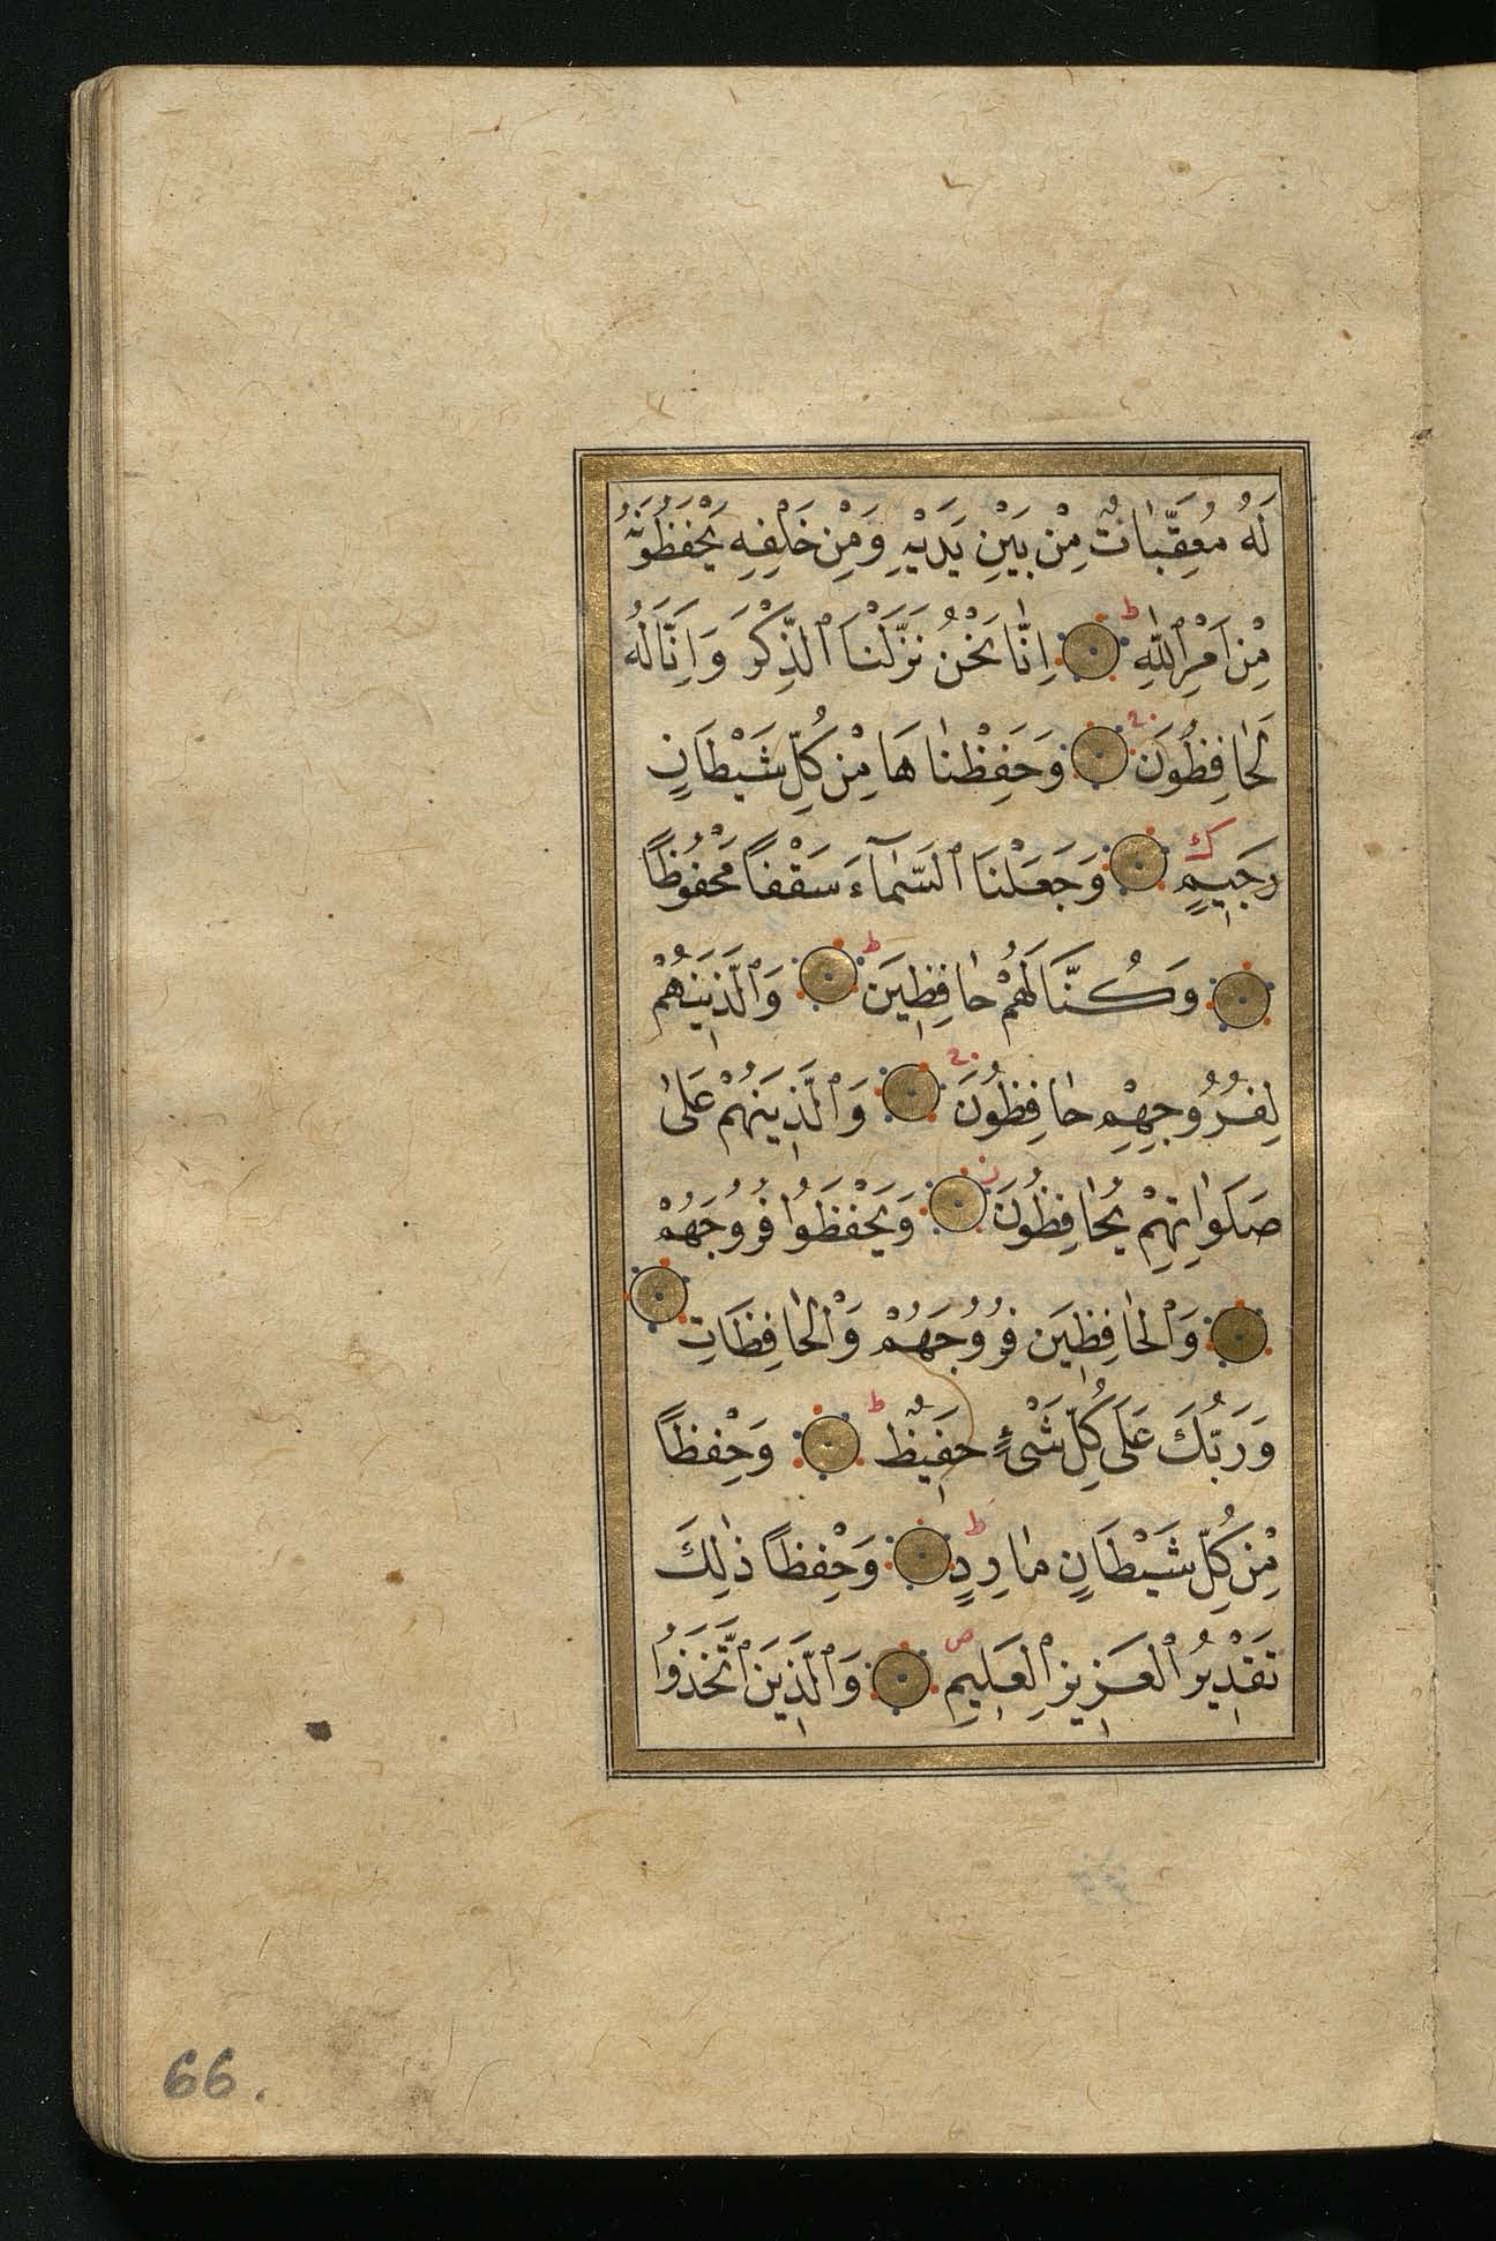 لَهُ مُعَقِّبَاتٌ مِنْ بَيْنِ يَدَيْهِ وَمِنْ خَلْفِهِ يَحْفَظُونَهُ
مِنْ اَمْرِ اللّٰهِ ط اِنَّا نَحْنُ نَزَّلْنَا الذِّكْرَ وَاِنَّا لَهُ
لَحَافِظُونَ وَحَفِظْنَاهَا مِنْ كُلِّ شَيْطَانٍ
رَجِيمٍ ك وَجَعَلْنَا السَّمَآءَ سَقْفًا مَحْفُوظًا
وَكُنَّا لَهُمْ حَافِظِينَ ط وَالَّذِينَ هُمْ
لِفُرُوجِهِمْ حَافِظُونَ وَالَّذِينَ هُمْ عَلٰى
صَلَوَاتِهِمْ يُحَافِظُونَ ز وَيَحْفَظُوا فُرُوجَهُمْ
وَالْحَافِظِينَ فُرُوجَهُمْ وَالْحَافِظَاتِ
وَرَبُّكَ عَلٰى كُلِّ شَىْءٍ حَفِيظٌ ط وَحِفْظًا
مِنْ كُلِّ شَيْطَانٍ مَارِدٍ ط وَحِفْظًا ذٰلِكَ
تَقْدِيرُ الْعَزِيزِ الْعَلِيمِ ص وَالَّذِينَ اتَّخَذُوا
66.